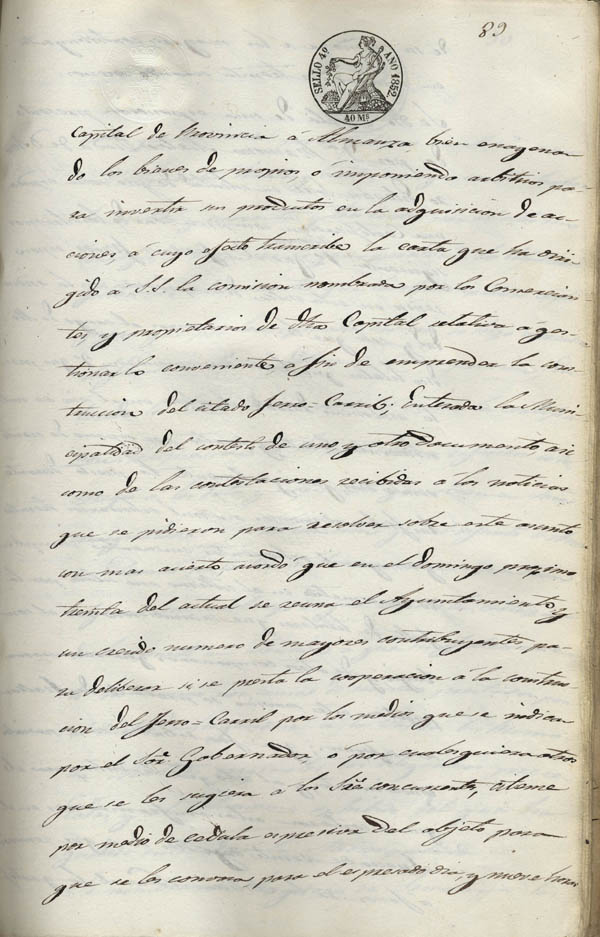 89
SELLO 4º AÑO 1852.
40 Ms
Capital de Provincia á Almanza bien enagenan
do los bienes de propios, ó imponiendo arbitrios pa
ra invertir sus productos en la adquisicion de ac
ciones á cuyo efecto transcribe la carta que ha diri
gido á S.S. la comision nombrada por los Comercian
tes y propietarios de dha Capital relativa á ges
tionar lo conveniente á fin de emprender la cons
truccion del citado Ferro-Carril; Entrada la Muni
cipalidad del contesto de uno, y otro documento asi
como de las contestaciones recibidas á las noticias
que se pidieron para resolver sobre este asunto
con mas acierto, acordó que en el domingo proximo
treinta del actual se reuna el Ayuntamiento y
un crecido numero de mayores contribuyentes pa
ra deliberar si se presta la cooperacion á la construc
cion del Ferro-Carril por los medios que se indican
por el Sor. Gobernador ó por cualesquiera otros
que se les sugiera á los Sres. concurrentes, citeme
por medio de cedula espresiva del objeto para
que se les convoca, para el espresado dia, y nueve horas